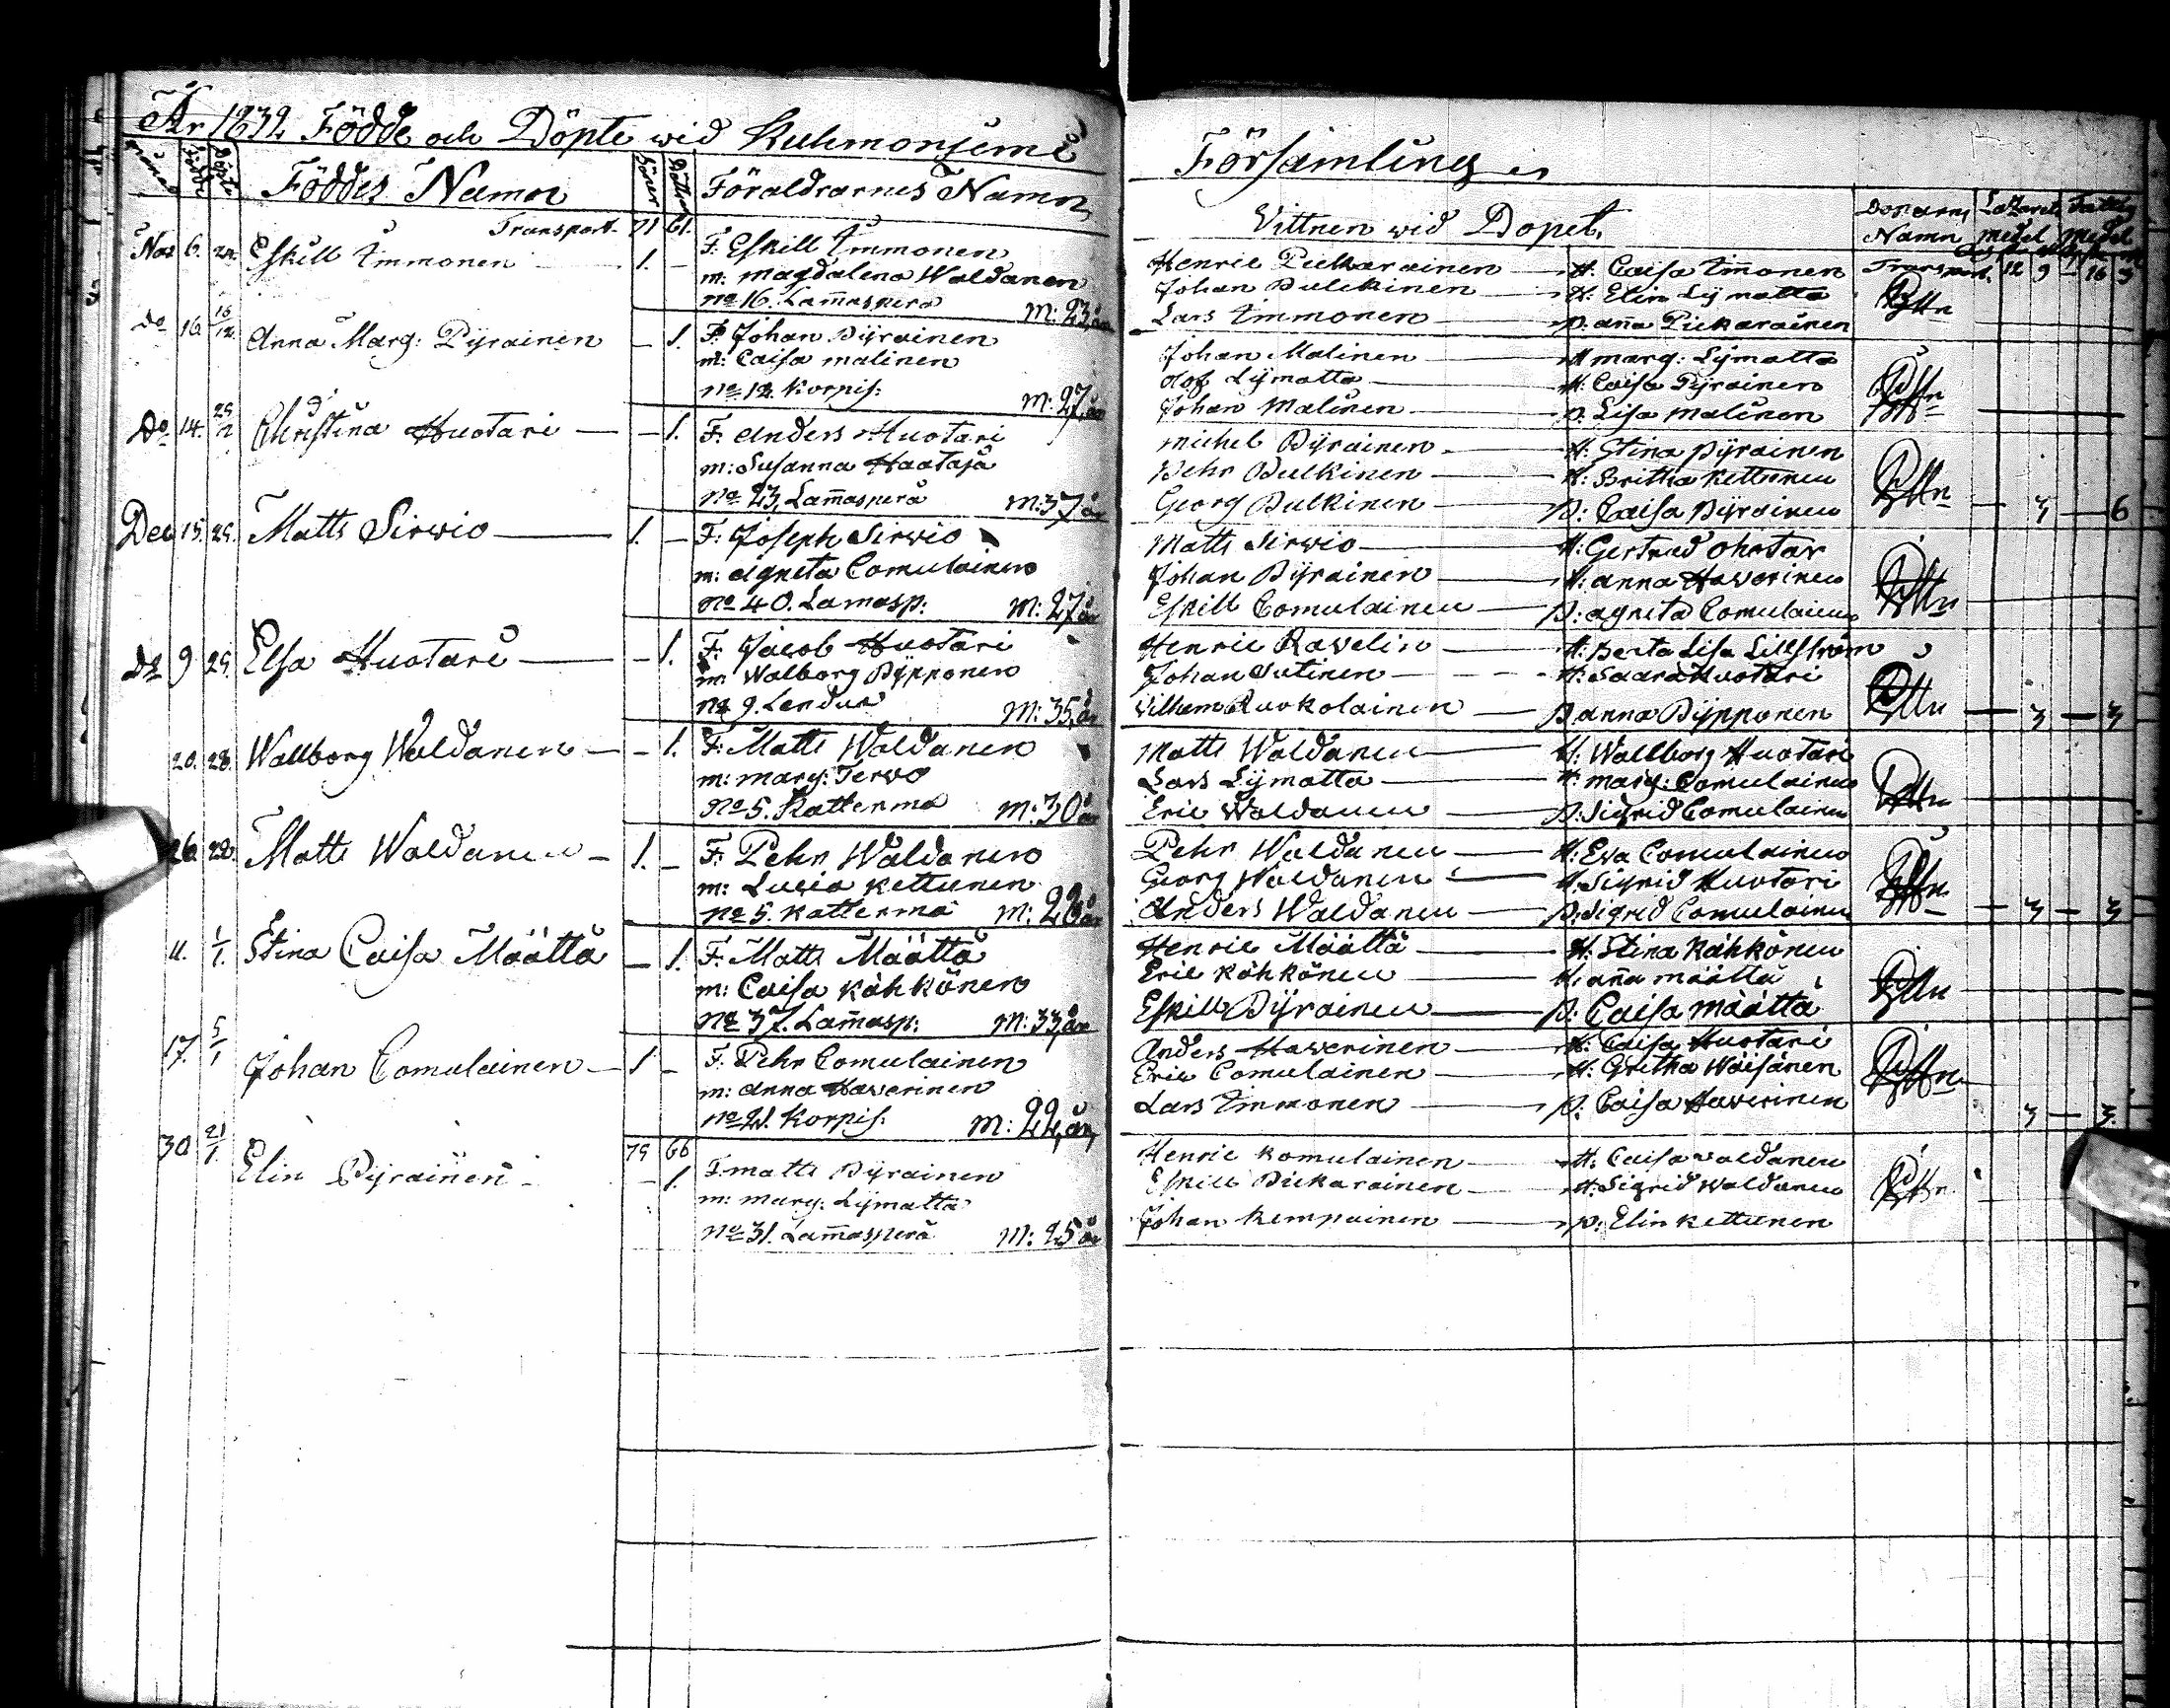 År 1832. Födde och Döpte wid Kuhmonjemi
Församling
Månad Födde Döpte Föddes Namn Söner Döttrar Föräldrarnes Namn
Vittnen wid Dopet. Döparns Namn Lazarets medel Fattig medel
Transport. 71 61.
Transport. 12 9 – 16 3
Nov 6. 24. Eskill Immonen 1. – F. Eskill Immonen
m: Magdalena Waldanen
No 16. Lam̄asperä m: 23, år
Henric Pickarainen — H: Caisa Im̄onen
Johan Pulckinen — H: Elin Lymatta
Lars Immonen — p: Anna Pickarainen
do 16 16/12 Anna Marg: Pyrainen – 1. F: Johan Pyrainen
m: Caisa Malinen
No 12. Korpis: m: 27, år
Johan Malinen — H marg: Lymatta
Olof Lymatta — H: Caisa Pyrainen
Johan Malinen — p. Lisa Malinen
Do 14. 25/12 Christina Huotari – 1. F: Anders Huotari
m: Susanna Haataja
No 23, Lam̄asperä m: 37 år
Michel Pyrainen — H: Stina Pyrainen
Pehr Pulkinen — H: Britha Kettunen
Georg Pulkinen — p: Caisa Pyrainen — 3 — 6
Dec 15. 25. Matts Sirwio 1. – F: Joseph Sirwio
m: Agneta Comulainen
No 40. Lamasp: m: 27 år
Matts Sirwio — H: Gertrud Ohotar
Johan Pyrainen — H: Anna Haverinen
Eskill Comulainen — p: Agneta Comulainen
do 9 25. Elsa Huotari – 1. F: Jacob Huotari
m: Walborg Pypponen
No 9. Lendua m: 35, år
Henric Ravelin — H: Berta Lisa Lillström
Johan Sutinen — H: Saara Huotari
Vilhem Ruokolainen — p anna Pypponen — 3 — 3
20. 28. Wallborg Waldanen – 1. F: Matts Waldanen
m: Marg: Terwo
No 5. Katterma m: 30 år
Matts Waldanen — H: Wallborg Huotari
Lars Lymatta — H: Marg: Comulainen
Eric Waldanen — p: Sigrid Comulainen
26. 28. Matts Waldanen 1. – F: Pehr Waldanen
m: Lucia Kettunen
No 5. Katterma m: 28 år
Pehr Waldanen — H: Eva Comulainen
Georg Waldanen — H: Sigrid Huotari
Anders Waldanen — p: Sigrid Comulainen — 3 — 3
11. 1/1. Stina Caisa Määttä – 1. F: Matts Määttä
m: Caisa Kähkönen
No 37. Lam̄asp: m: 33, år
Henric Määttä — H: Stina Kähkönen
Eric Kähkönen — H: Anna Määttä
Eskill Pyrainen — p: Caisa Määttä
17. 5/1 Johan Comulainen 1 – F: Pehr Comulainen
m: Anna Haverinen
No 21. Korpis: m: 22, år,
Anders Haverinen — H: Caisa Huotari
Eric Comulainen — H: Gretha Wäisänen
Lars Immonen — p: Caisa Haverinen 3 — 3.
75 66
30 21/1. Elin Pyrainen – 1. F: Matts Pyrainen
m: Marg: Lymatta
No 31. Lam̄asperä m: 25 år
Henric Komulainen — H: Caisa Waldanen
Eskill Pickarainen — H: Sigrid Waldanen
Johan Kempainen — p: Elin Kettunen